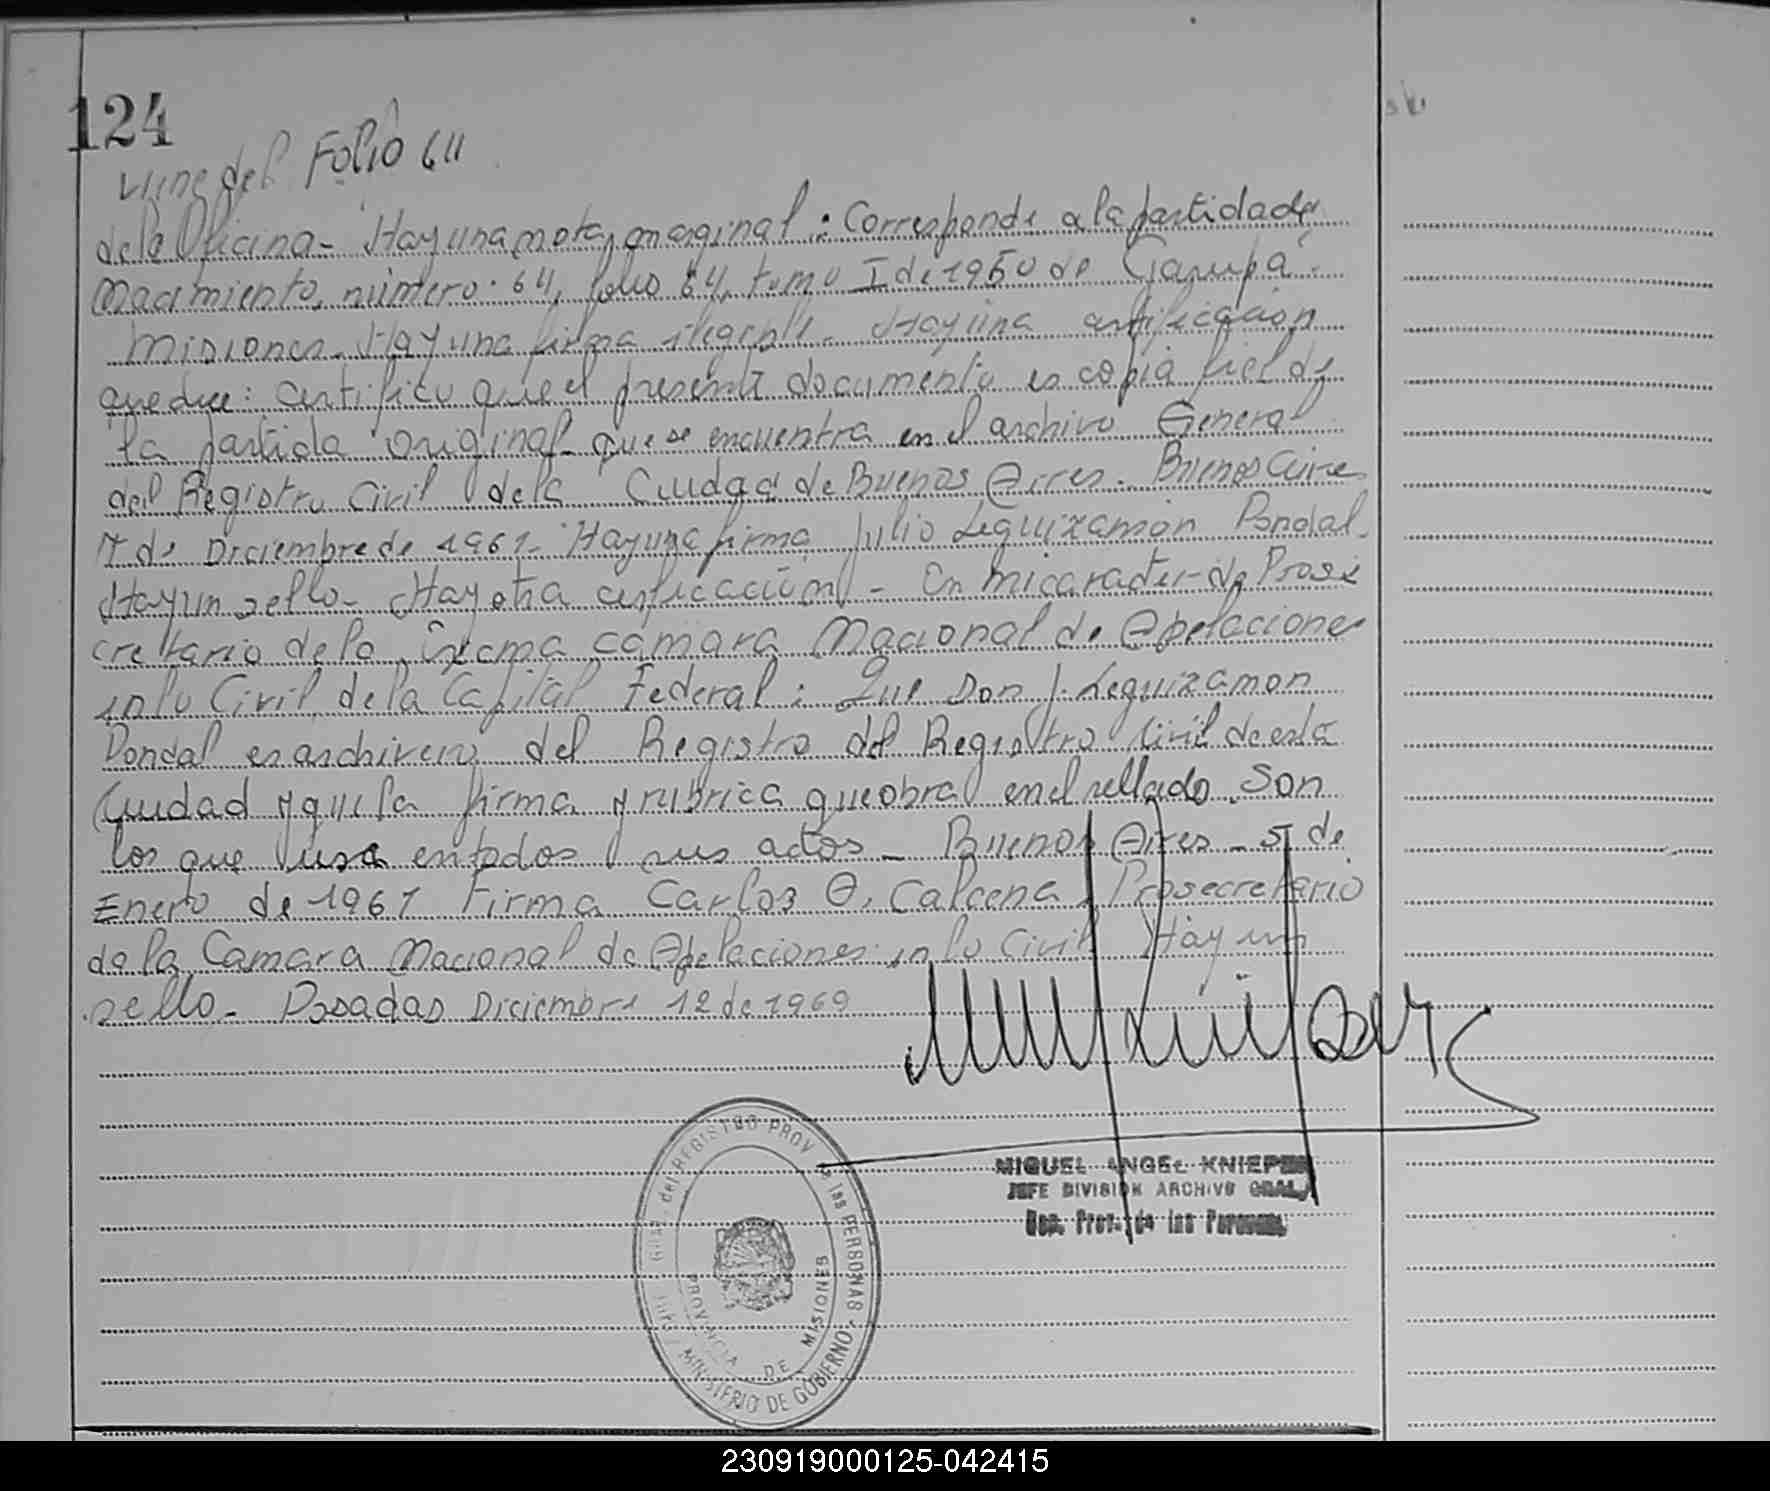 124
Viene del Folio 64
de la Oficina - Hay una nota marginal: Corresponde a la partida de
Nacimiento, número 64, folio 64, tomo I de 1950 de Garupá
Misiones. Hay una firma ilegible. Hay una certificación
que dice: certifico que el presente documento es copia fiel de
la partida original que se encuentra en el archivo General
del Registro Civil de la Ciudad de Buenos Aires. Buenos Aires
7 de Diciembre de 1961 - Hay una firma Julio Leguizamón Pondal.
Hay un sello - Hay otra certificación - En mi caracter de Prose
cretario de la Excma camara Nacional de Apelaciones
en lo Civil de la Capital Federal: Que Don J. Leguizamon
Pondal es archivero del Registro del Registro Civil de esta
Ciudad y que la firma y rubrica que obra en el sellado son
los que usa en todos sus actos - Buenos Aires - 5 de
Enero de 1961 Firma Carlos O. Calcena Prosecretario
de la Camara Nacional de Apelaciones en lo Civil Hay un
sello - Posadas Diciembre 12 de 1969
del REGISTRO PROV. de las PERSONAS
MINISTERIO DE GOBIERNO
PROVINCIA DE MISIONES
MIGUEL ANGEL KNIEPER
JEFE DIVISION ARCHIVO GRAL.
Prov. de las Personas
230919000125-042415